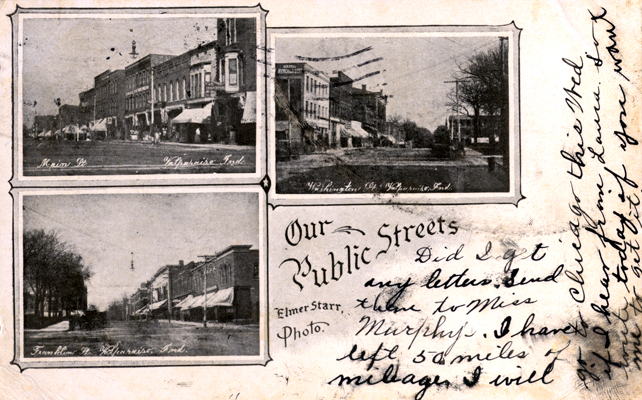 Main St. Valparaiso Ind.
Washington St. Valparaiso, Ind.
Franklin St. Valparaiso. Ind.
Our
Public Streets
Elmer Starr,
Photo.
Did I get
any letters. Send
them to Miss
Murphy. I have
left 50 miles of
mileage, I will
go to Chicago this Wed
if I hear from
today if you want